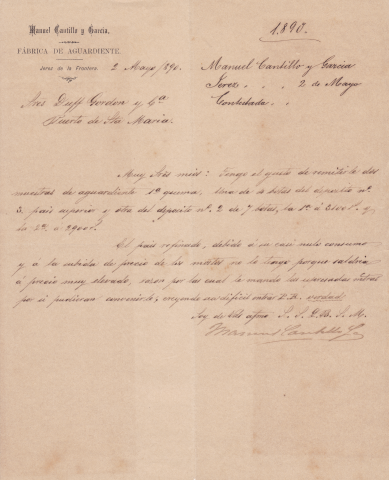 Manuel Cantillo y García,
FÁBRICA DE AGUARDIENTE.
Jerez de la Frontera 2 Mayo 1890.
1890.
Manuel Cantillo y García
Jerez . . 2 de Mayo
Contestada . .
Sres Duff Gordon y Cª
Puerto de Sta María.
Muy Sres mios: Tengo el gusto de remitirle dos
muestras de aguardiente 1ª quema. Una de 4 botas del deposito nº
3, pais superior y otra del deposito nº 2 de 7 botas, la 1ª á y
la 2ª á
El pais refinado, debido á su casi nulo consumo
y á la subida de precio de los mostos no lo hago porque saldria
á precio muy elevado, razon por la cual le mando las espresadas
por si pudieran convenirle, verdad
Soy de Vds afmo S. S. Q. B. S. M.
Manuel Cantillo Ga